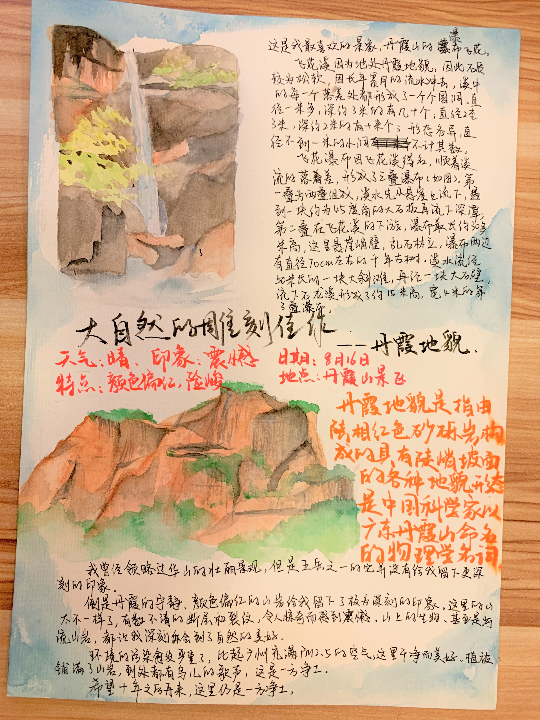 这是我最喜欢的景象,丹霞山的瀑布飞花。
飞花溪因为地处丹霞地貌,因此石质
较为松软,因长年累月的流水冲击,溪中
的每一个落差处都形成了一个个圆洞,直
径一米多,深约3米的有几十个;直径2至
3米,深约2米的有十来个;形态各异,直
径不到一米的小洞 不计其数。
飞花瀑布因飞花溪得名,顺着溪
流的落差,形成了三叠瀑布(如图)。第
一叠为两叠组成,溪水先从悬崖上流下,遇
到一块约为45度角的大石板再流下深潭。
第二叠在飞花溪的下游,瀑布最长约
米高,这里悬崖峭壁,乱石林立,瀑布两边
有直径70cm左右的千年古树。溪水流经
米长的一块大斜滩,再经一块大石壁
流下石龙溪形成了约15米高,宽4米的第
三叠瀑布
大自然的雕刻佳作
——丹霞地貌.
天气:晴 印象:震撼 日期:8月16日
特点:颜色偏红,险峻 地点:丹霞山景区
丹霞地貌是指由
陆相红色砂砾岩构
成的具有陡峭坡面
的各种地貌形态
是中国科学家以
广东丹霞山命名
的物理学名词
我曾经领略过华山的壮丽景观,但是五岳之一的它并没有给我留下更深
刻的印象。
倒是丹霞的宁静,颜色偏红的山岩给我留下了极为深刻的印象,这里的山
太不一样了,有数不清的断层和裂纹,令人惊奇而感到震撼,山上的生物,甚至是
流山岩,都让我深刻体会到了自然的美好。
环境的污染愈发多重了,比起广州充满PM2.5的空气,这里干净而美好,植被
铺满了山岩,到处都有鸟儿的歌声,这是一方净土。
希望十年之后再来,这里仍是一方净土。